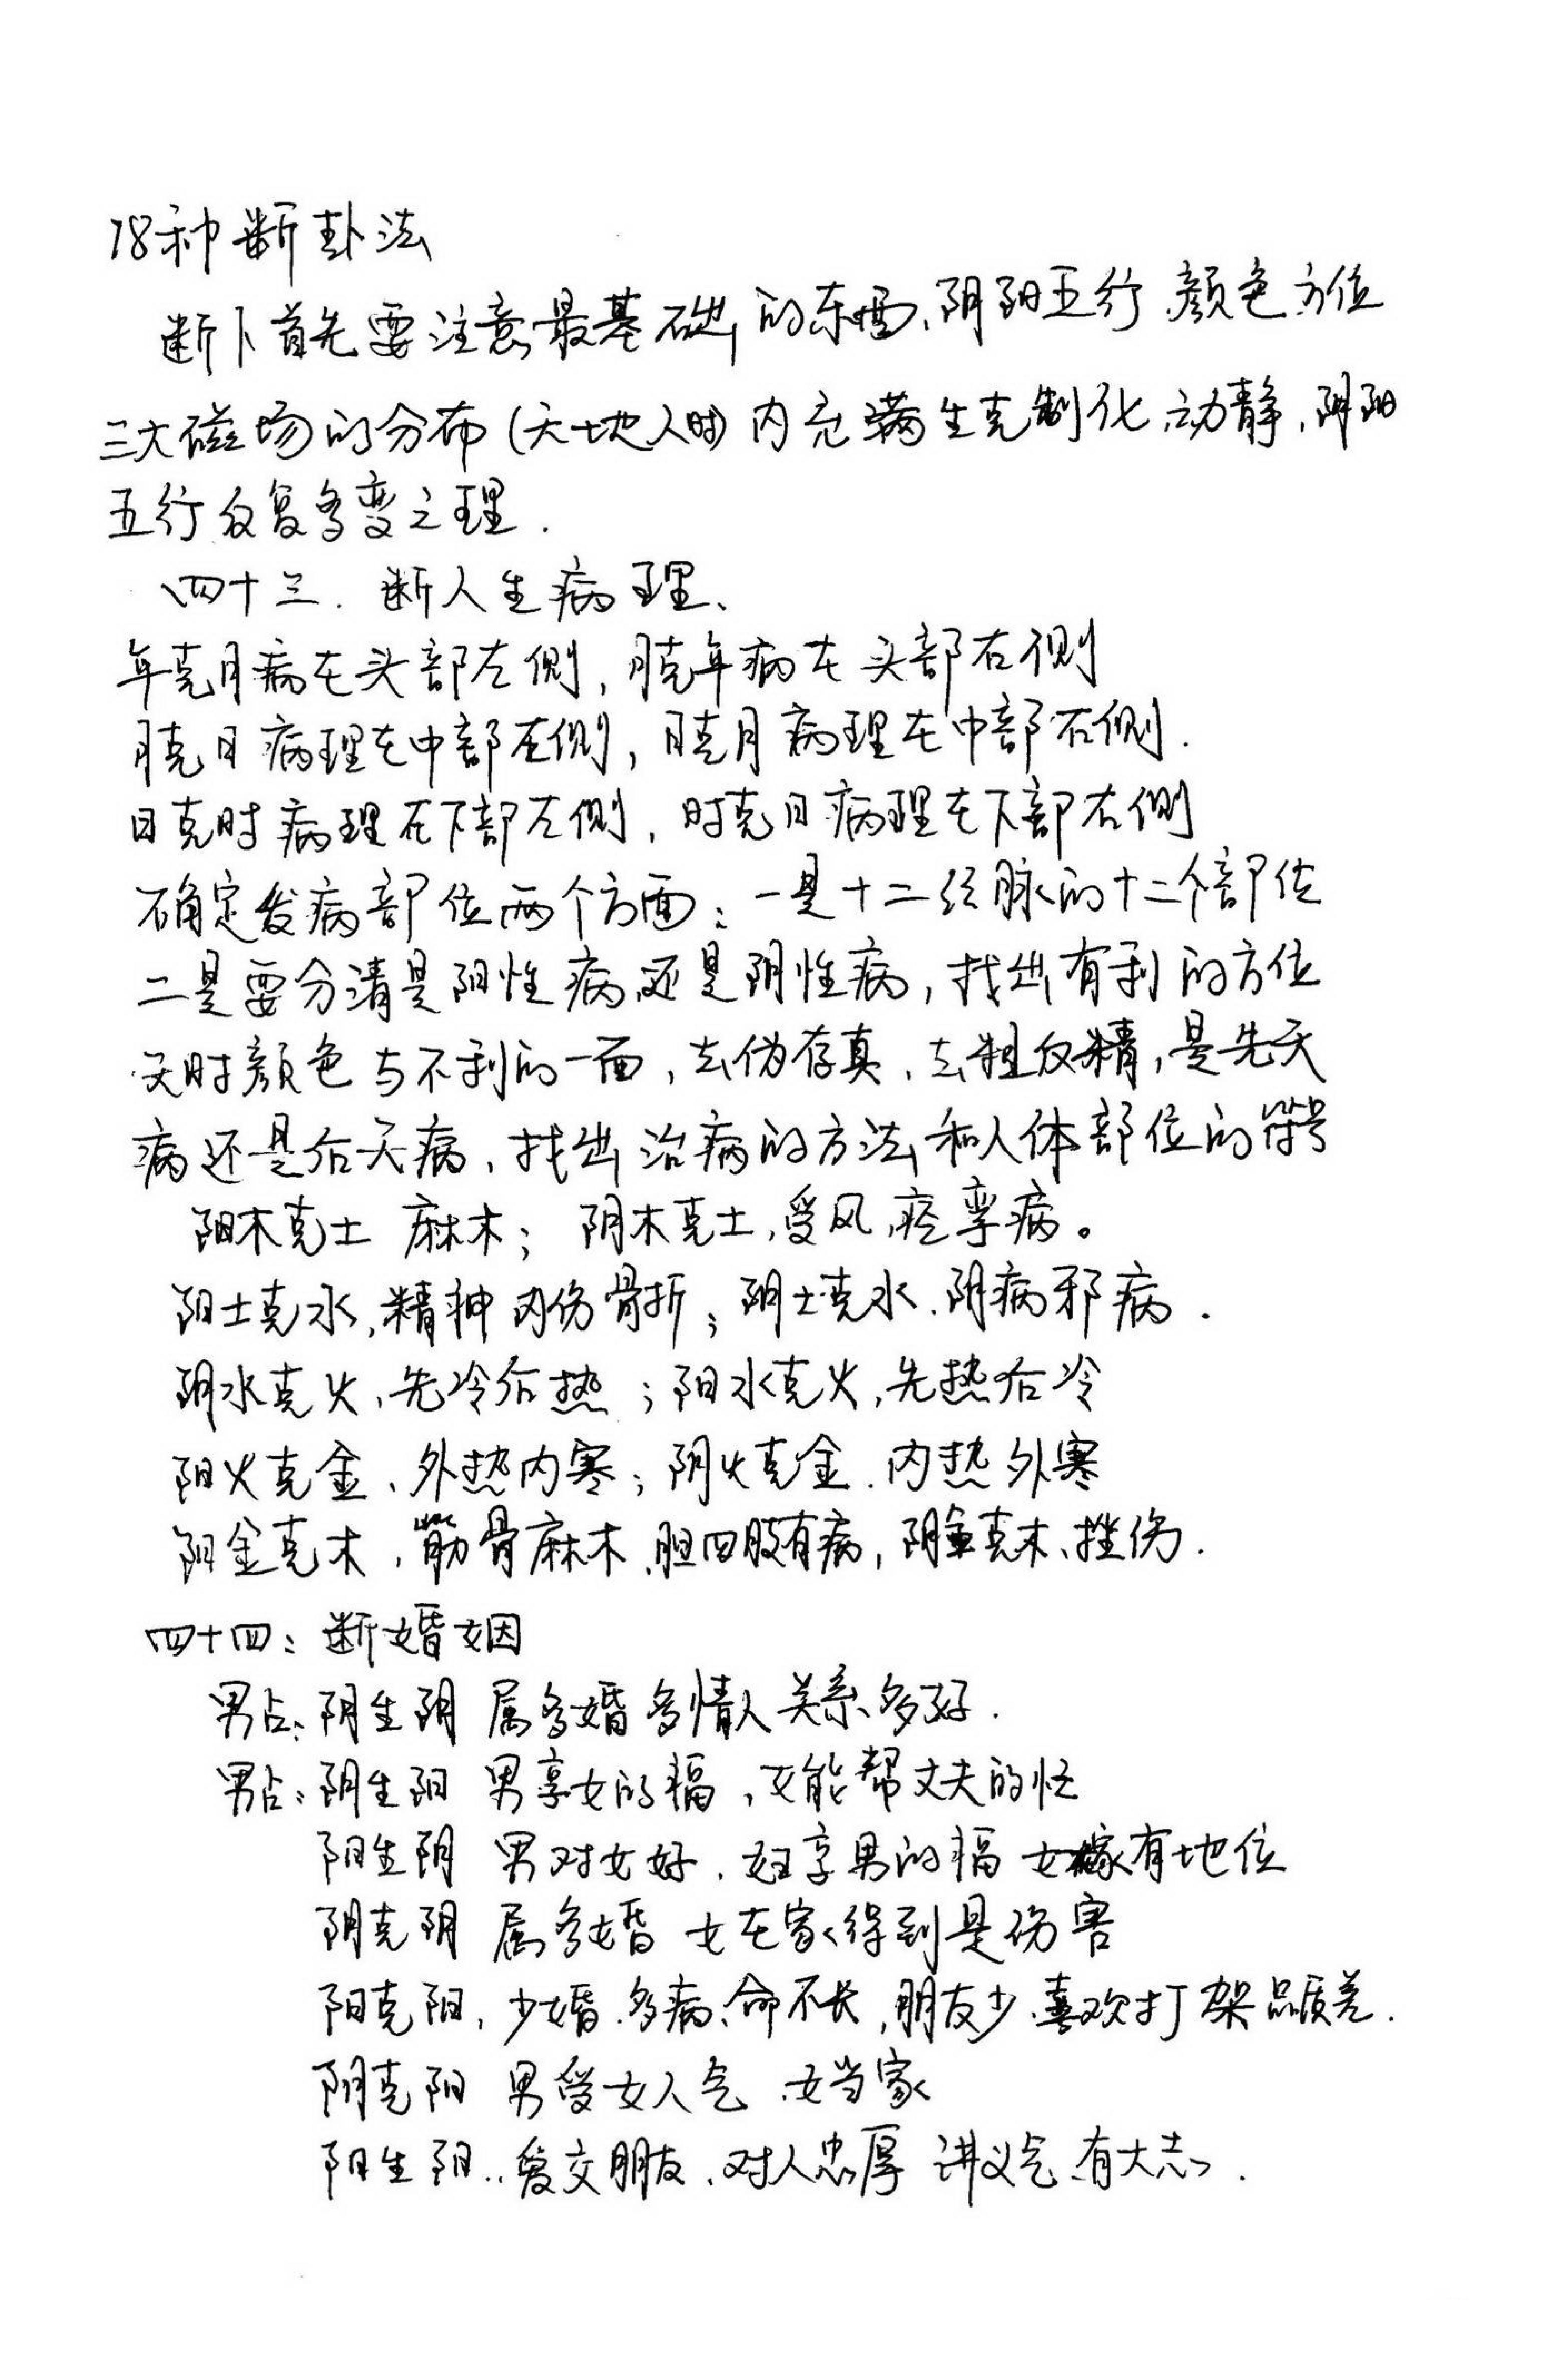 78种断卦法
断卜首先要注意最基础的东西、阴阳五行、颜色、方位
三大磁场的分布(天地人时)内充满生克制化、动静、阴阳
五行反复多变之理.
四十三. 断人生病理、
年克月病在头部左侧,月克年病在头部右侧
月克日病理在中部左侧,日克月病理在中部右侧.
日克时病理在下部左侧,时克日病理在下部右侧
确定发病部位两个方面:一是十二经脉的十二个部位
二是要分清是阳性病还是阴性病,找出有利的方位
天时颜色与不利的一面,去伪存真、去粗取精,是先天
病还是后天病、找出治病的方法和人体部位的符号
阳木克土 麻木; 阴木克土,受风,痉挛病。
阳土克水,精神内伤骨折;阴土克水.阴病邪病.
阴水克火、先冷后热;阳水克火,先热后冷
阳火克金、外热内寒;阴火克金.内热外寒
阳金克木,筋骨麻木、胆四肢有病,阴金克木、挫伤.
四十四:断婚姻
男占:阴生阴 属多婚多情人关系多好.
男占:阴生阳 男享女的福,女能帮丈夫的忙
阳生阴 男对女好.女享男的福 女嫁有地位
阴克阴 属多婚 女在家得到是伤害
阳克阳,少婚.多病、命不长,朋友少、喜欢打架品质差.
阴克阳 男受女人气、女当家
阳生阳..爱交朋友、对人忠厚 讲义气、有大志.